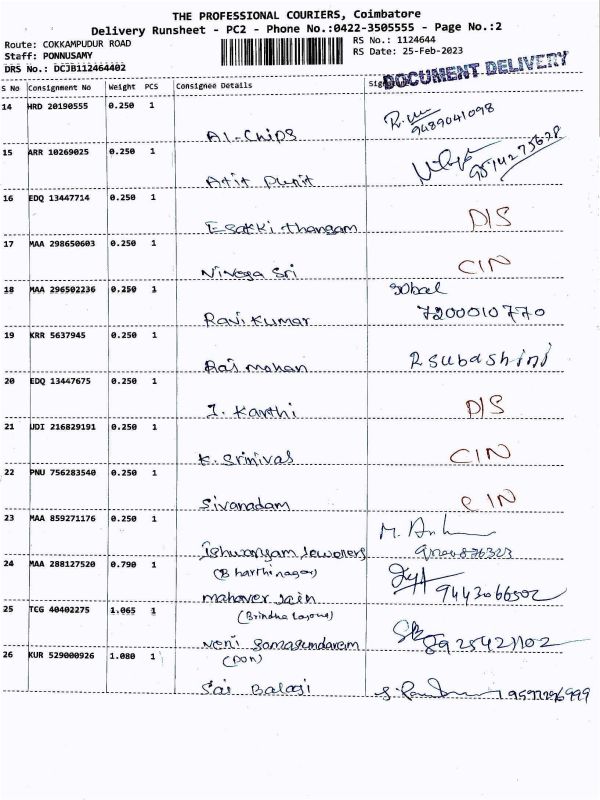 THE PROFESSIONAL COURIERS, Coimbatore
Delivery Runsheet - PC2 - Phone No.:0422-3505555 - Page No.:2
Route: COKKAMPUDUR ROAD
RS No.: 1124644
Staff: PONNUSAMY
RS Date: 25-Feb-2023
DRS No.: DCJB112464402
DOCUMENT DELIVERY
S No Consignment No Weight PCS Consignee Details
14 HRD 20190555 0.250 1
9489041098
A1-Chips
15 ARR 10269025 0.250 1
Atit Punit
16 EDQ 13447714 0.250 1
D/S
Esakki thangam
17 MAA 298650603 0.250 1
CIN
Nivega Sri
18 MAA 296502236 0.250 1
7200010770
Ravi Kumar
19 KRR 5637945 0.250 1
R Subashini
Raj mohan
20 EDQ 13447675 0.250 1
D/S
J. Karthi
21 UDI 216829191 0.250 1
CIN
K. Srinivas
22 PNU 756283540 0.250 1
CIN
Sivanadam
23 MAA 859271176 0.250 1
Ishwaryam Jewellers
24 MAA 288127520 0.790 1
(Bharthinagar)
9443066502
mahaver Jain
25 TCG 40402275 1.065 1
(Brindha Layout)
8925421102
Neni Somasundaram
26 KUR 529000926 1.080 1
(DON)
Sai Balaji